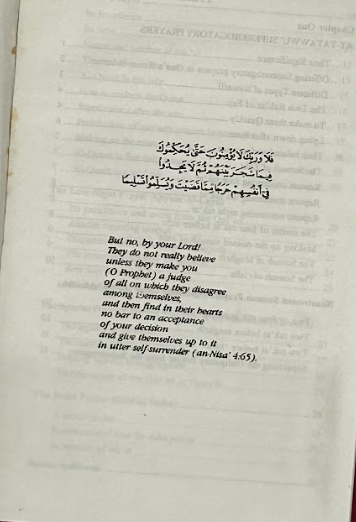 فَلَا وَرَبِّكَ لَا يُؤْمِنُونَ حَتَّىٰ يُحَكِّمُوكَ
فِيمَا شَجَرَ بَيْنَهُمْ ثُمَّ لَا يَجِدُوا
فِي أَنْفُسِهِمْ حَرَجًا مِمَّا قَضَيْتَ وَيُسَلِّمُوا تَسْلِيمًا
But no, by your Lord!
They do not really believe
unless they make you
(O Prophet) a judge
of all on which they disagree
among themselves,
and then find in their hearts
no bar to an acceptance
of your decision
and give themselves up to it
in utter self-surrender (an-Nisa' 4:65).